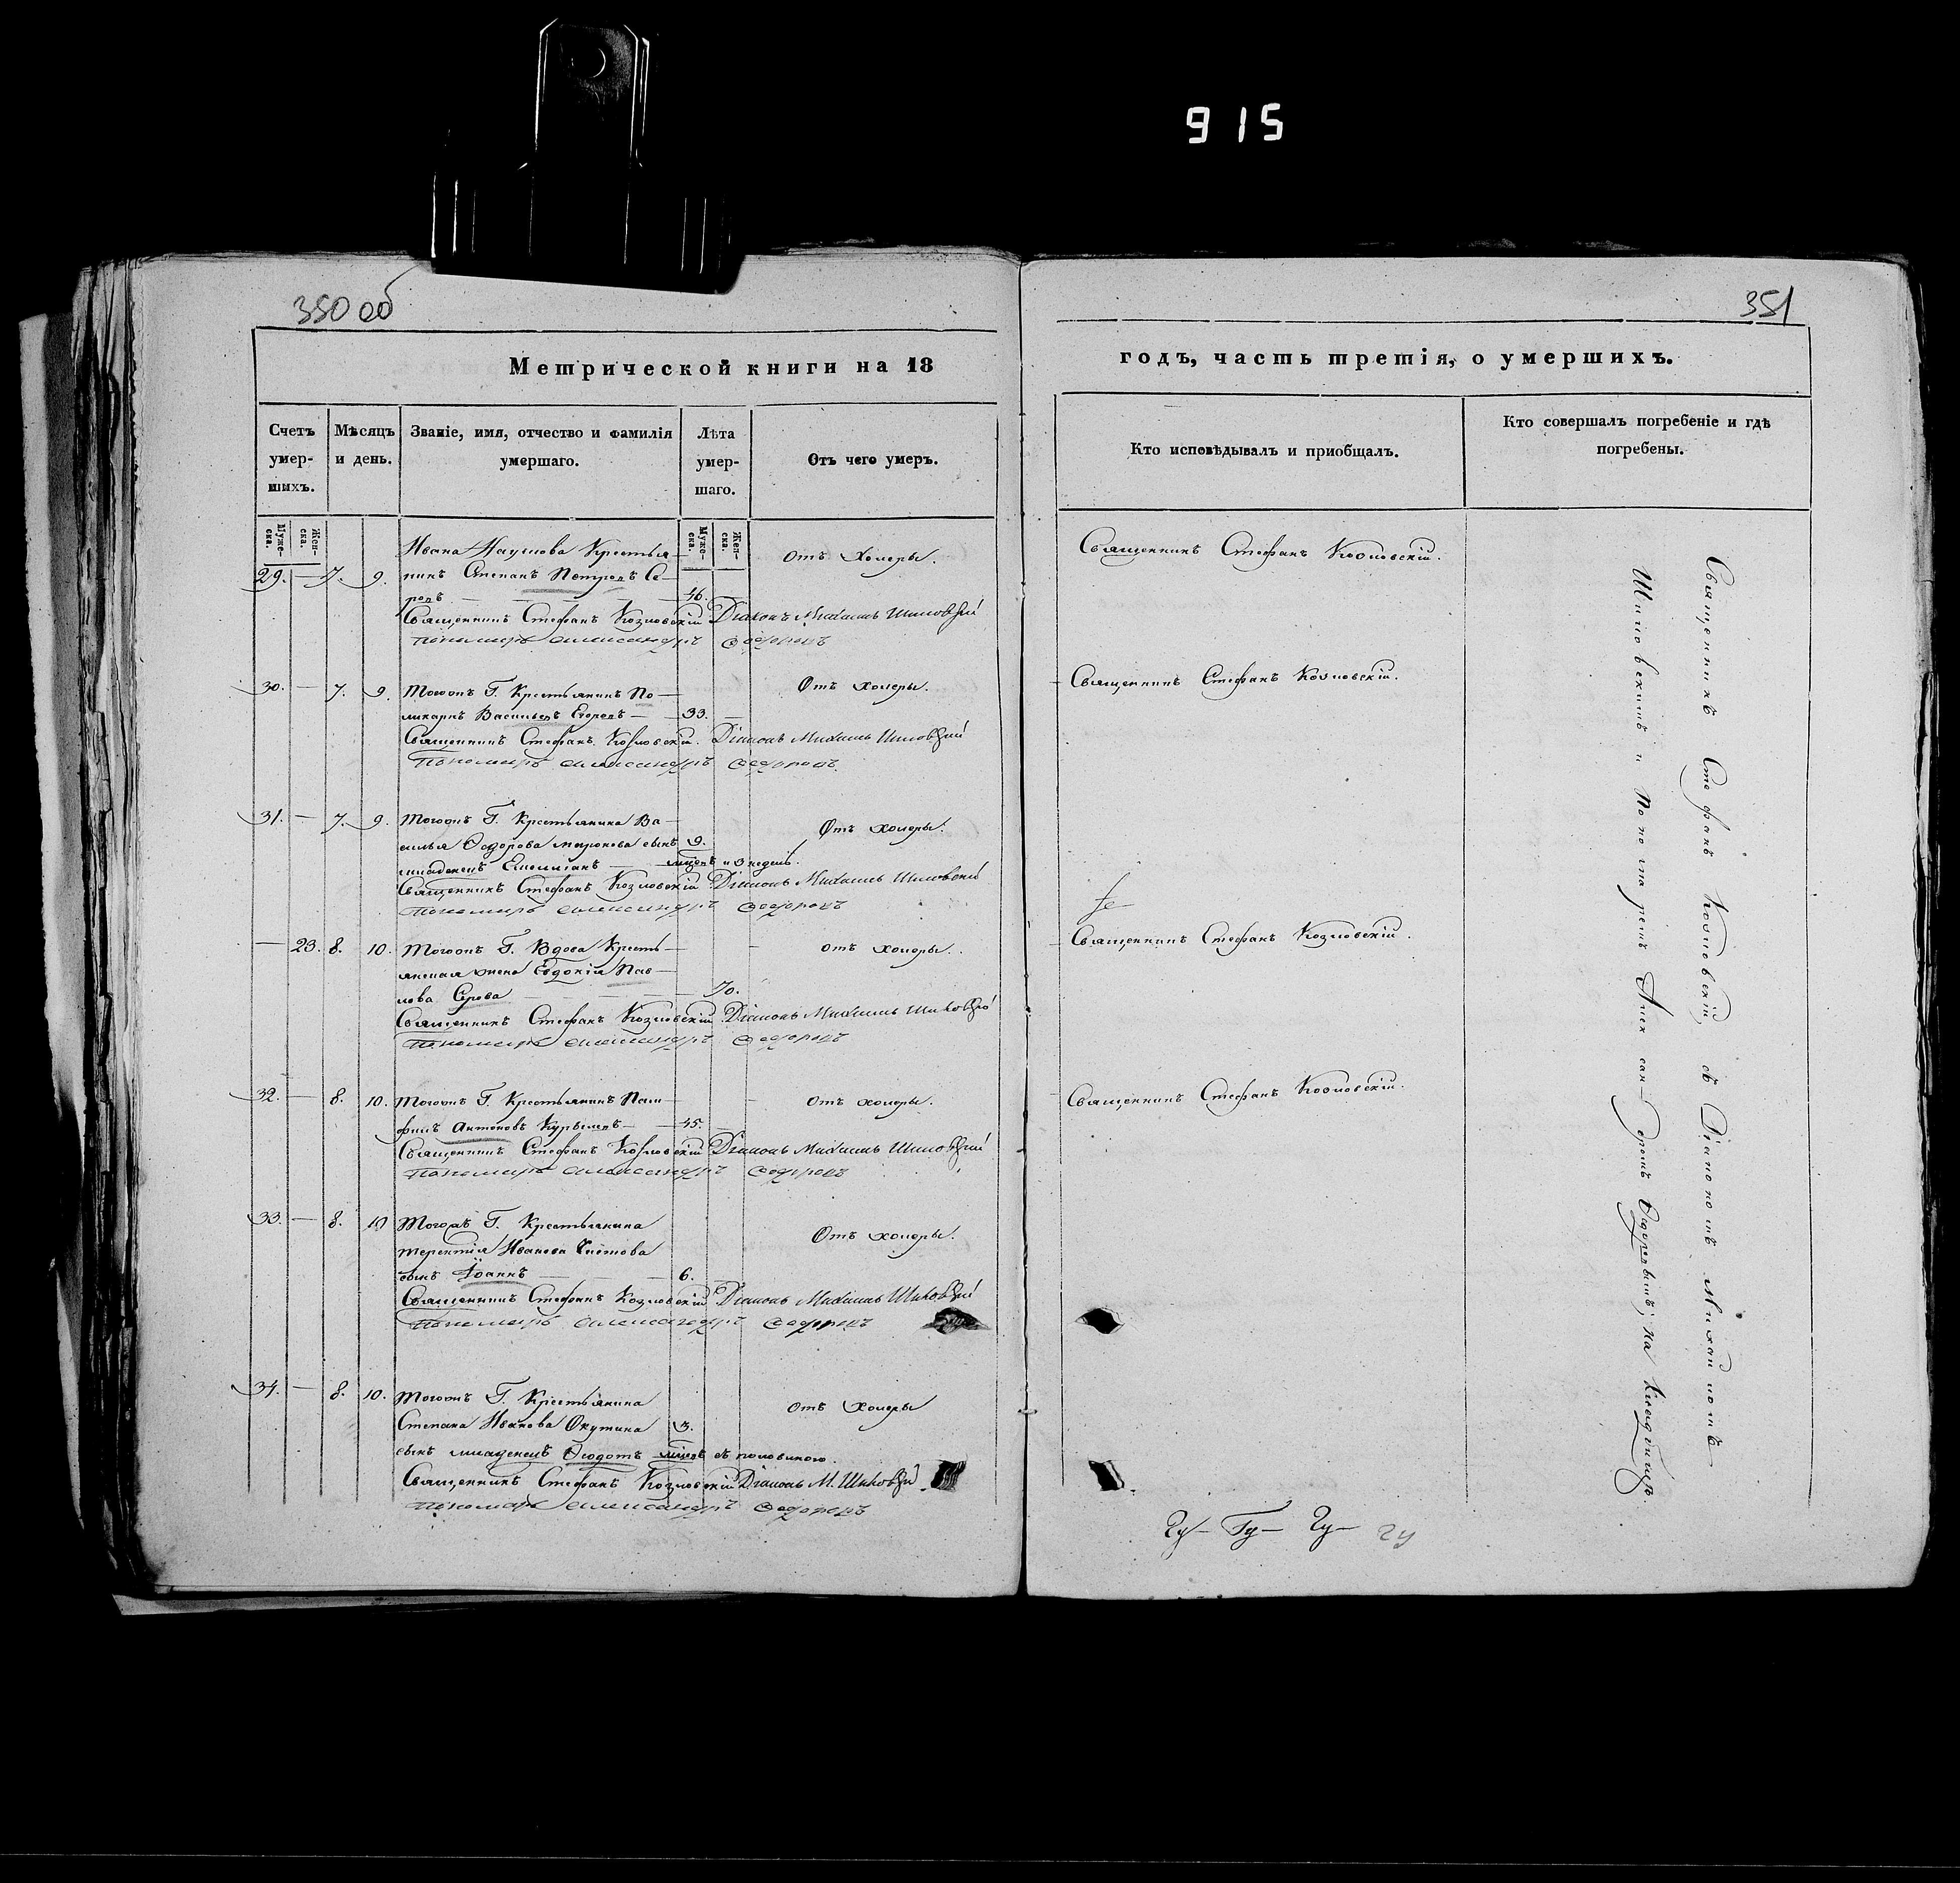 915
350 об
351
Метрической книги на 18
годъ, часть третія, о умершихъ.
Счетъ умер-шихъ.
Мѣсяцъ и день.
Званіе, имя, отчество и фамилія умершаго.
Лѣта умер-шаго.
Отъ чего умеръ.
Кто исповѣдывалъ и приобщалъ.
Кто совершалъ погребеніе и гдѣ погребены.
Муже-ска.
Жен-ска.
Муже-ска.
Жен-ска.
Ивана Наумова Крестья-
29. — 7. 9. нинъ Степанъ Петровъ Се-
ровъ — 46. —
Отъ Холеры.
Священникъ Стефанъ Козловскій.
Священникъ Стефанъ Козловскій Діаконъ Михаилъ Шиловскій
Пономарь Александръ Ѳедоровъ
30. — 7. 9. Тогожъ Г. Крестьянинъ По-
ликарпъ Васильевъ Егоровъ — 33. —
Отъ холеры.
Священникъ Стефанъ Козловскій.
Священникъ Стефанъ Козловскій. Діаконъ Михаилъ Шиловскій
Пономарь Александръ Ѳедоровъ.
31. — 7. 9. Тогожъ Г. Крестьянина Ва-
силья Ѳедорова Миронова сынъ 9.
младенецъ — мцовъ и 3 недель.
Отъ холеры.
Священникъ Стефанъ Козловскій Діаконъ Михаилъ Шиловскій
Пономарь Александръ Ѳедоровъ
— 23. 8. 10. Тогожъ Г. Вдова Кресть-
янская жена Евдокія Пав-
лова Серова — 70.
Отъ холеры.
Священникъ Стефанъ Козловскій.
Священникъ Стефанъ Козловскій Діаконъ Михаилъ Шиловскій
Пономарь Александръ Ѳедоровъ
32. — 8. 10. Тогожъ Г. Крестьянинъ Пам-
филъ Антоновъ Курышевъ — 45. —
Отъ холеры.
Священникъ Стефанъ Козловскій.
Священникъ Стефанъ Козловскій Діаконъ Михаилъ Шиловскій
Пономарь Александръ Ѳедоровъ
33. — 8. 10 Тогожъ Г. Крестьянина
Терентія Иванова
сынъ Іоаннъ — 6. —
Отъ холеры.
Священникъ Стефанъ Козловскій Діаконъ Михаилъ Шиловскій
Пономарь Александръ Ѳедоровъ
34. — 8. 10. Тогожъ Г. Крестьянина
Степана Иванова Окутина 3.
сынъ младенецъ Ѳеодотъ мцовъ съ половиною.
Отъ Холеры
Священникъ Стефанъ Козловскій Діаконъ М. Шиловскій
Пономарь Александръ Ѳедоровъ
Священникъ Стефанъ Козловскій, съ Діакономъ Михаиломъ
Шиловскимъ и Пономаремъ Александромъ Ѳедоровымъ; на Кладбищѣ.